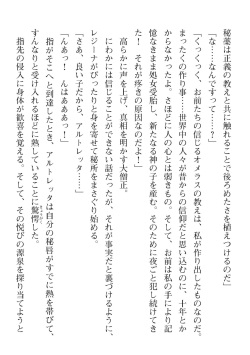 秘薬は正義の教えと共に触れることで後ろめたさを植えつけるのだ」
「な……なんですって……」
「くっくっく、お前たちの信じるオメラスの教えは、私が作り出したものなのだ。
まったくの作り事……世界中の人々が昔からの信仰だと思い込むのに、十年とか
からなかったよ。これほどに人の心とは脆いものか。そして、お前は私の手により記
憶なきまま処女受胎し、新たなる神の子を産む。そのために夜ごと犯し続けてき
た！　それが疼きの原因なのだよ！」
　高らかに声を上げ、真相を明かす大僧正。
　にわかには信じることができない話だったが、それが事実だと裏づけるように、
レジーナがぴったりと身を寄せて秘所をまさぐり始める。
「さあ、良い子だから、アルトレッタ……」
「んあっ！　んはあああっ！」
　指がそこへと到達したとき、アルトレッタは自分の秘唇がすでに熱を帯びて、
すんなりと受け入れるほどに熟していることに驚愕した。
　指先の侵入に身体が歓喜を覚える。そして、その悦びの源泉を探り当てようと